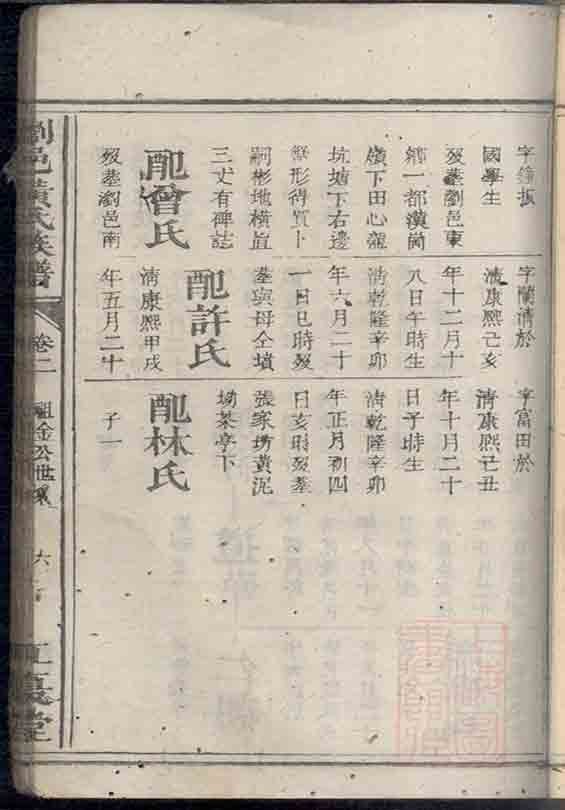 字鐘振
國學生
歿墓瀏邑東
鄉一都漢崗
嶺下田心龍
坑塘下右邊
擧形得買卜
嗣彬地橫豎
三丈有碑誌
配曾氏
歿墓瀏邑南
字蘭清於
清康熙己亥
年十二月十
八日午時生
清乾隆辛卯
年六月二十
一日巳時歿
墓與母仝墳
配許氏
清康熙甲戌
年五月二十
字富田於
清康熙己丑
年十月二十
日子時生
清乾隆辛卯
年正月初四
日亥時歿墓
張家坊黃泥
坳茶亭下
配林氏
子一
瀏邑黃氏族譜
卷二
祖金公世系
六